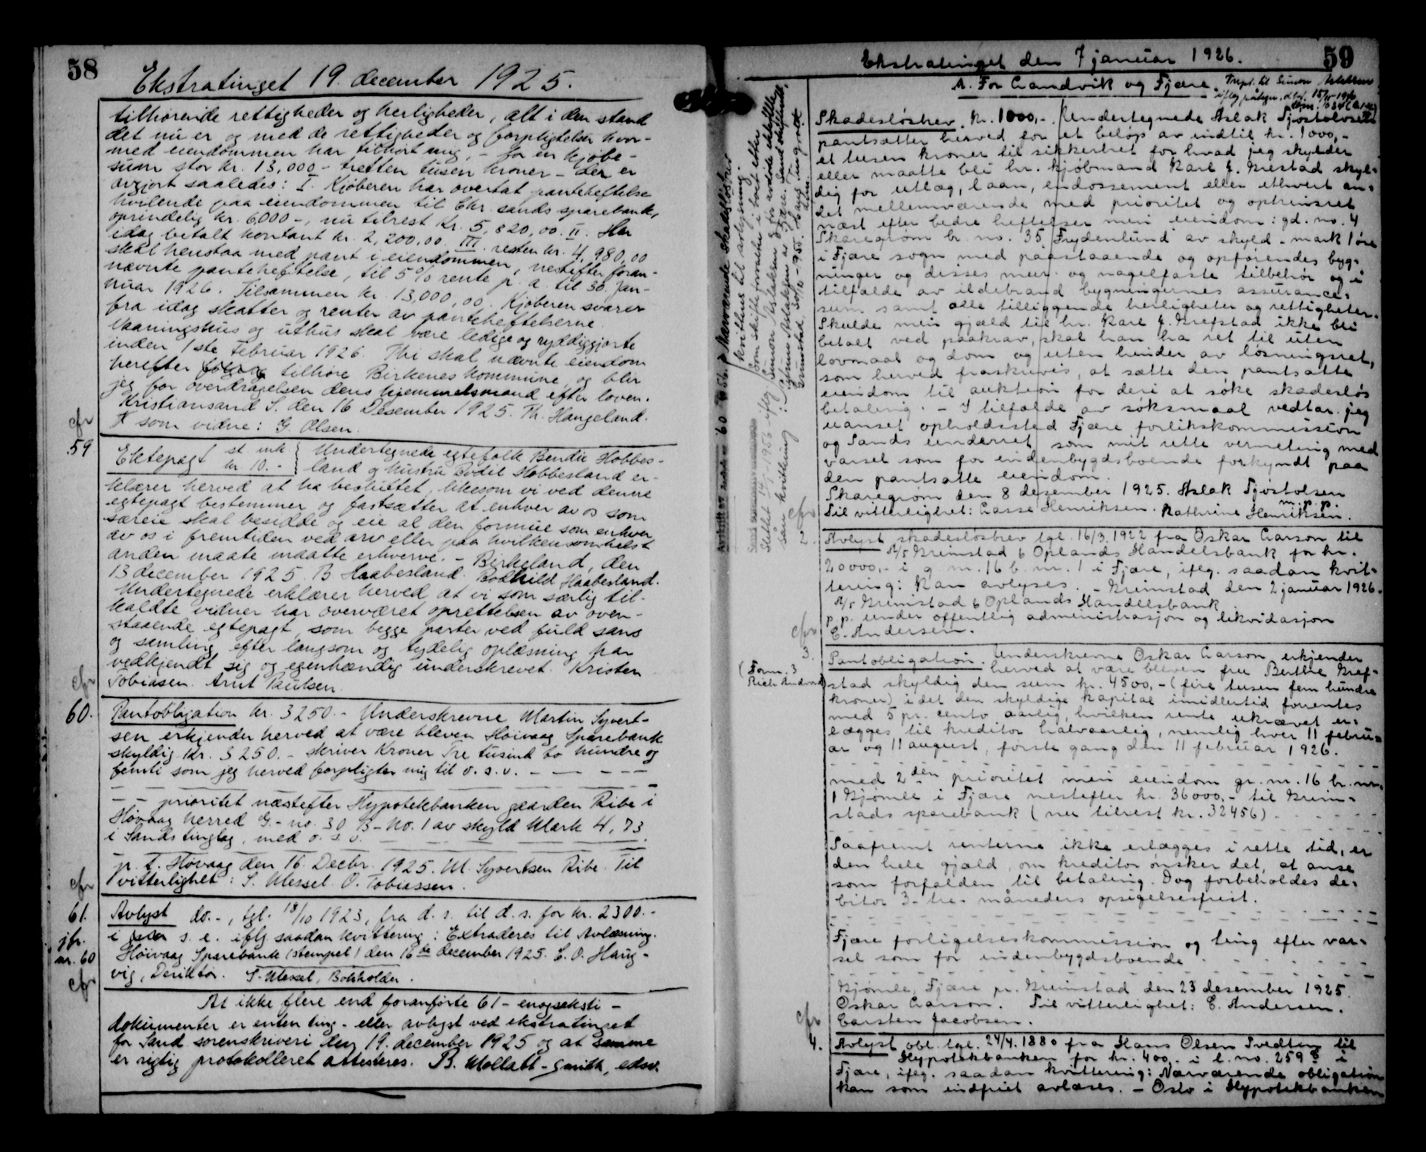 58
Ekstratinget 19. december 1925.
tilhørende rettigheder og herligheder, alt i den stand
det nu er og med de rettigheder og forpligtelser hvor-
med eiendommen har tilhørt mig, - for en kjøbe-
sum stor kr. 13,000 - tretten tusen kroner - der er
avgjort saaledes: I. Kjøberen har overtat pantehæftelse
hvilende paa eiendommen til Chr. sands sparebank,
oprindelig kr. 6000 -, nu tilrest kr. 5,820,00. II. Har
idag betalt kontant kr. 2,200,00. III. resten kr. 4,980,00
skal henstaa med pant i eiendommen, næstefter foran-
nævnte pantehæftelse, til 5% rente p. a. til 30 jan-
nuar 1926. Tilsammen kr. 13,000,00. Kjøberen svarer
fra idag skatter og renter av pantehæftelserne.
Vaaningshus og uthus skal være ledige og ryddiggjorte
inden 1ste Februar 1926. Thi skal nævnte eiendom
herefter tilhøre Birkenes kommune, og blir
jeg for overdragelsen dens hjemmelsmand efter loven.
Kristiansand S. den 16 Desember 1925. Th. Haugeland.
som vidne: G. Olsen.
cfr
59
Ektepagt st. mk kr. 10.- Undertegnede egtefolk Bendix Hobbes-
land og hustru Bodil Hobbesland er-
klærer herved at ha besluttet, likesom vi ved denne
egtepagt bestemmer og fastsætter at enhver av os som
særeie skal besidde og eie al den formue som enhver
av os i fremtiden ved arv eller paa hvilkensomhelst
anden maate maatte erhverve. - Birkeland, den
13 december 1925. B Haabesland. Bodhild Haabesland.
Undertegnede erklærer herved at vi som særlig til-
kaldte vidner har overværet oprettelsen av oven-
staaende egtepagt, som begge parter ved fuld sans
og samling, efter langsom og tydelig oplæsning har
vedkjendt sig og egenhændig underskrevet. Kristen
Tobiasen. Arnt Paulsen.
cfr
60.
Pantobligation kr. 3250.- Underskrevne Martin Syvert-
sen erkjender herved at være bleven Høivaag Sparebank
skyldig kr. 3250.- skriver Kroner Tre tusind to hundre og
femti som jeg herved forpligter mig til o. s. v. - - - - -
- - prioritet næstefter Hypotekbanken gaarden Ribe i
Høvaag herred G- no. 30 B- No. 1 av skyld Mark 4,73
i Sands tinglag, med o. s. v.
p. t. Høvaag den 16. Decbr. 1925. M. Syvertsen Ribe. Til
vitterlighet: S. Messel. O. Tobiassen.
cfr
61.
jfr.
nr. 60
Avlyst do. -, tgl. 18/10 1923, fra d. s. til d. s. for kr. 2300.-
i s. e. iflg saadan kvittering: Extraderes til Avlæsning.
Høivaag Sparebank (stempel) den 16de december 1925. C. O. Haug-
vig, Direktør. S. Messel, Bokholder.
cfr
At ikke flere end foranførte 61 - enogseksti -
dokumenter er enten ting- eller avlyst ved ekstratinget
for Sand sorenskriveri den 19. december 1925 og at samme
er rigtig protokolleret attesteres. B. Mollatt-Smith, edsv.
59
Ekstratinget den 7 januar 1926.
A. For Landvik og Fjære.
Skadesløsbrev kr. 1000,-. Undertegnede Aslak Tjøstolvsen
pantsætter herved for et beløp av indtil kr. 1000,-
et tusen kroner til sikkerhet for hvad jeg skylder
eller maatte bli hr. kjøbmand Karl J. Grefstad skyl-
dig for utlag, laan, endossement eller ethvert an-
det mellemværende med prioritet og optrinsret
næst efter bedre heftelser min eiendom: gd. no. 4
Skaregrøm br. no. 35 Frydenlund av skyld - mark 1 øre
i Fjære sogn med paastaaende og opførendes byg-
ninger og disses mur- og nagelfaste tilbehør og i
tilfælde av ildebrand bygningernes assurance-
sum samt alle tilliggende herligheter og rettigheter.
Skulde min gjæld til hr. Karl J. Grefstad ikke bli
betalt ved paakrav, skal han ha ret til uten
lovmaal og dom og uten hinder av løsningsret,
som herved fraskrives, at sætte den pantsatte
eiendom til auktion for deri at søke skadesløs
betaling. - I tilfælde av søksmaal vedtar jeg
uanset opholdssted Fjære forlikskommission
og Sands underret som mit rette verneting med
varsel som for indenbygdsboende forkyndt paa
den pantsatte eiendom.
Skaregrøm den 8 desember 1925. Aslak Tjøstolsen
m. p. p.
Til vitterlighet: Lasse Henriksen. Kathrine Henriksen.
cfr
2.
Avlyst skadesløsbrev tgl. 16/3 1922 fra Oskar Larson til
A/S Grimstad & Oplands Handelsbank for kr.
20000,- i g. nr. 16 b. nr. 1 i Fjære, ifølg. saadan kvit-
tering: Kan avlyses. - Grimstad den 2 januar 1926.
A/S Grimstad & Oplands Handelsbank
p. p. under offentlig administrasjon og likvidasjon
E. Andersen.
cfr
3.
Pantobligation. Underskrevne Oskar Larson erkjender
herved at være bleven fru Berthe Gref-
stad skyldig den sum kr. 4500,- (fire tusen fem hundre
kroner) idet den skyldige kapital imidlertid forrentes
med 5 pr. cento aarlig, hvilken rente ukrævet er-
lægges til kreditor halvaarlig, nemlig hver 11 februa-
ar og 11 august, første gang den 11 februar 1926.
med 2den prioritet min eiendom gr. nr. 16 br. nr.
1 Gjømle i Fjære næstefter kr. 36000,- til Grim-
stads sparebank (nu tilrest kr. 32456).
Saafremt renterne ikke erlægges i rette tid, er
den hele gjæld, om kreditor ønsker det, at anse
som forfalden til betaling. Dog forbeholdes de-
bitor 3 - tre - maaneders opsigelsesfrist.
Fjære forligelseskommission og ting efter var-
sel som for indenbygdsboende.
Gjømle, Fjære pr. Grimstad den 23 desember 1925.
Oskar Larson. Til vitterlighet: E. Andersen.
Carsten Jacobsen.
cfr
4.
Avlyst obl. tgl. 24/4. 1880 fra Hans Olsen Tvedten til
Hypotekbanken for kr. 400,- i l. no. 259 i
Fjære, ifølg. saadan kvittering: Nærværende obligation
kan som indfriet avlæses. - Oslo i Hypotekbanken